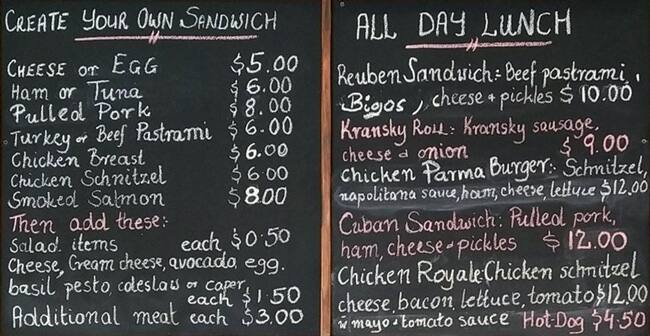 CREATE YOUR OWN SANDWICH
CHEESE or EGG $5.00
Ham or Tuna $6.00
Pulled Pork $8.00
Turkey or Beef Pastrami $6.00
Chicken Breast $6.00
Chicken Schnitzel $6.00
Smoked Salmon $8.00
Then add these:
Salad items each $0.50
Cheese, Cream cheese, avocado, egg.
basil pesto, coleslaw or caper,
each $1.50
Additional meat each $3.00
ALL DAY LUNCH
Reuben Sandwich: Beef pastrami,
Bigos, cheese + pickles $10.00
Kransky Roll: Kransky sausage,
cheese & onion $9.00
Chicken Parma Burger: Schnitzel,
napolitana sauce, ham, cheese, lettuce $12.00
Cuban Sandwich: Pulled pork,
ham, cheese + pickles $12.00
Chicken Royale: Chicken schnitzel
cheese, bacon, lettuce, tomato $12.00
w mayo + tomato sauce Hot-Dog $4.50